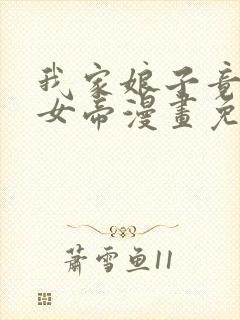 我家娘子竟
女帝漫畫免
蕭雪魚11